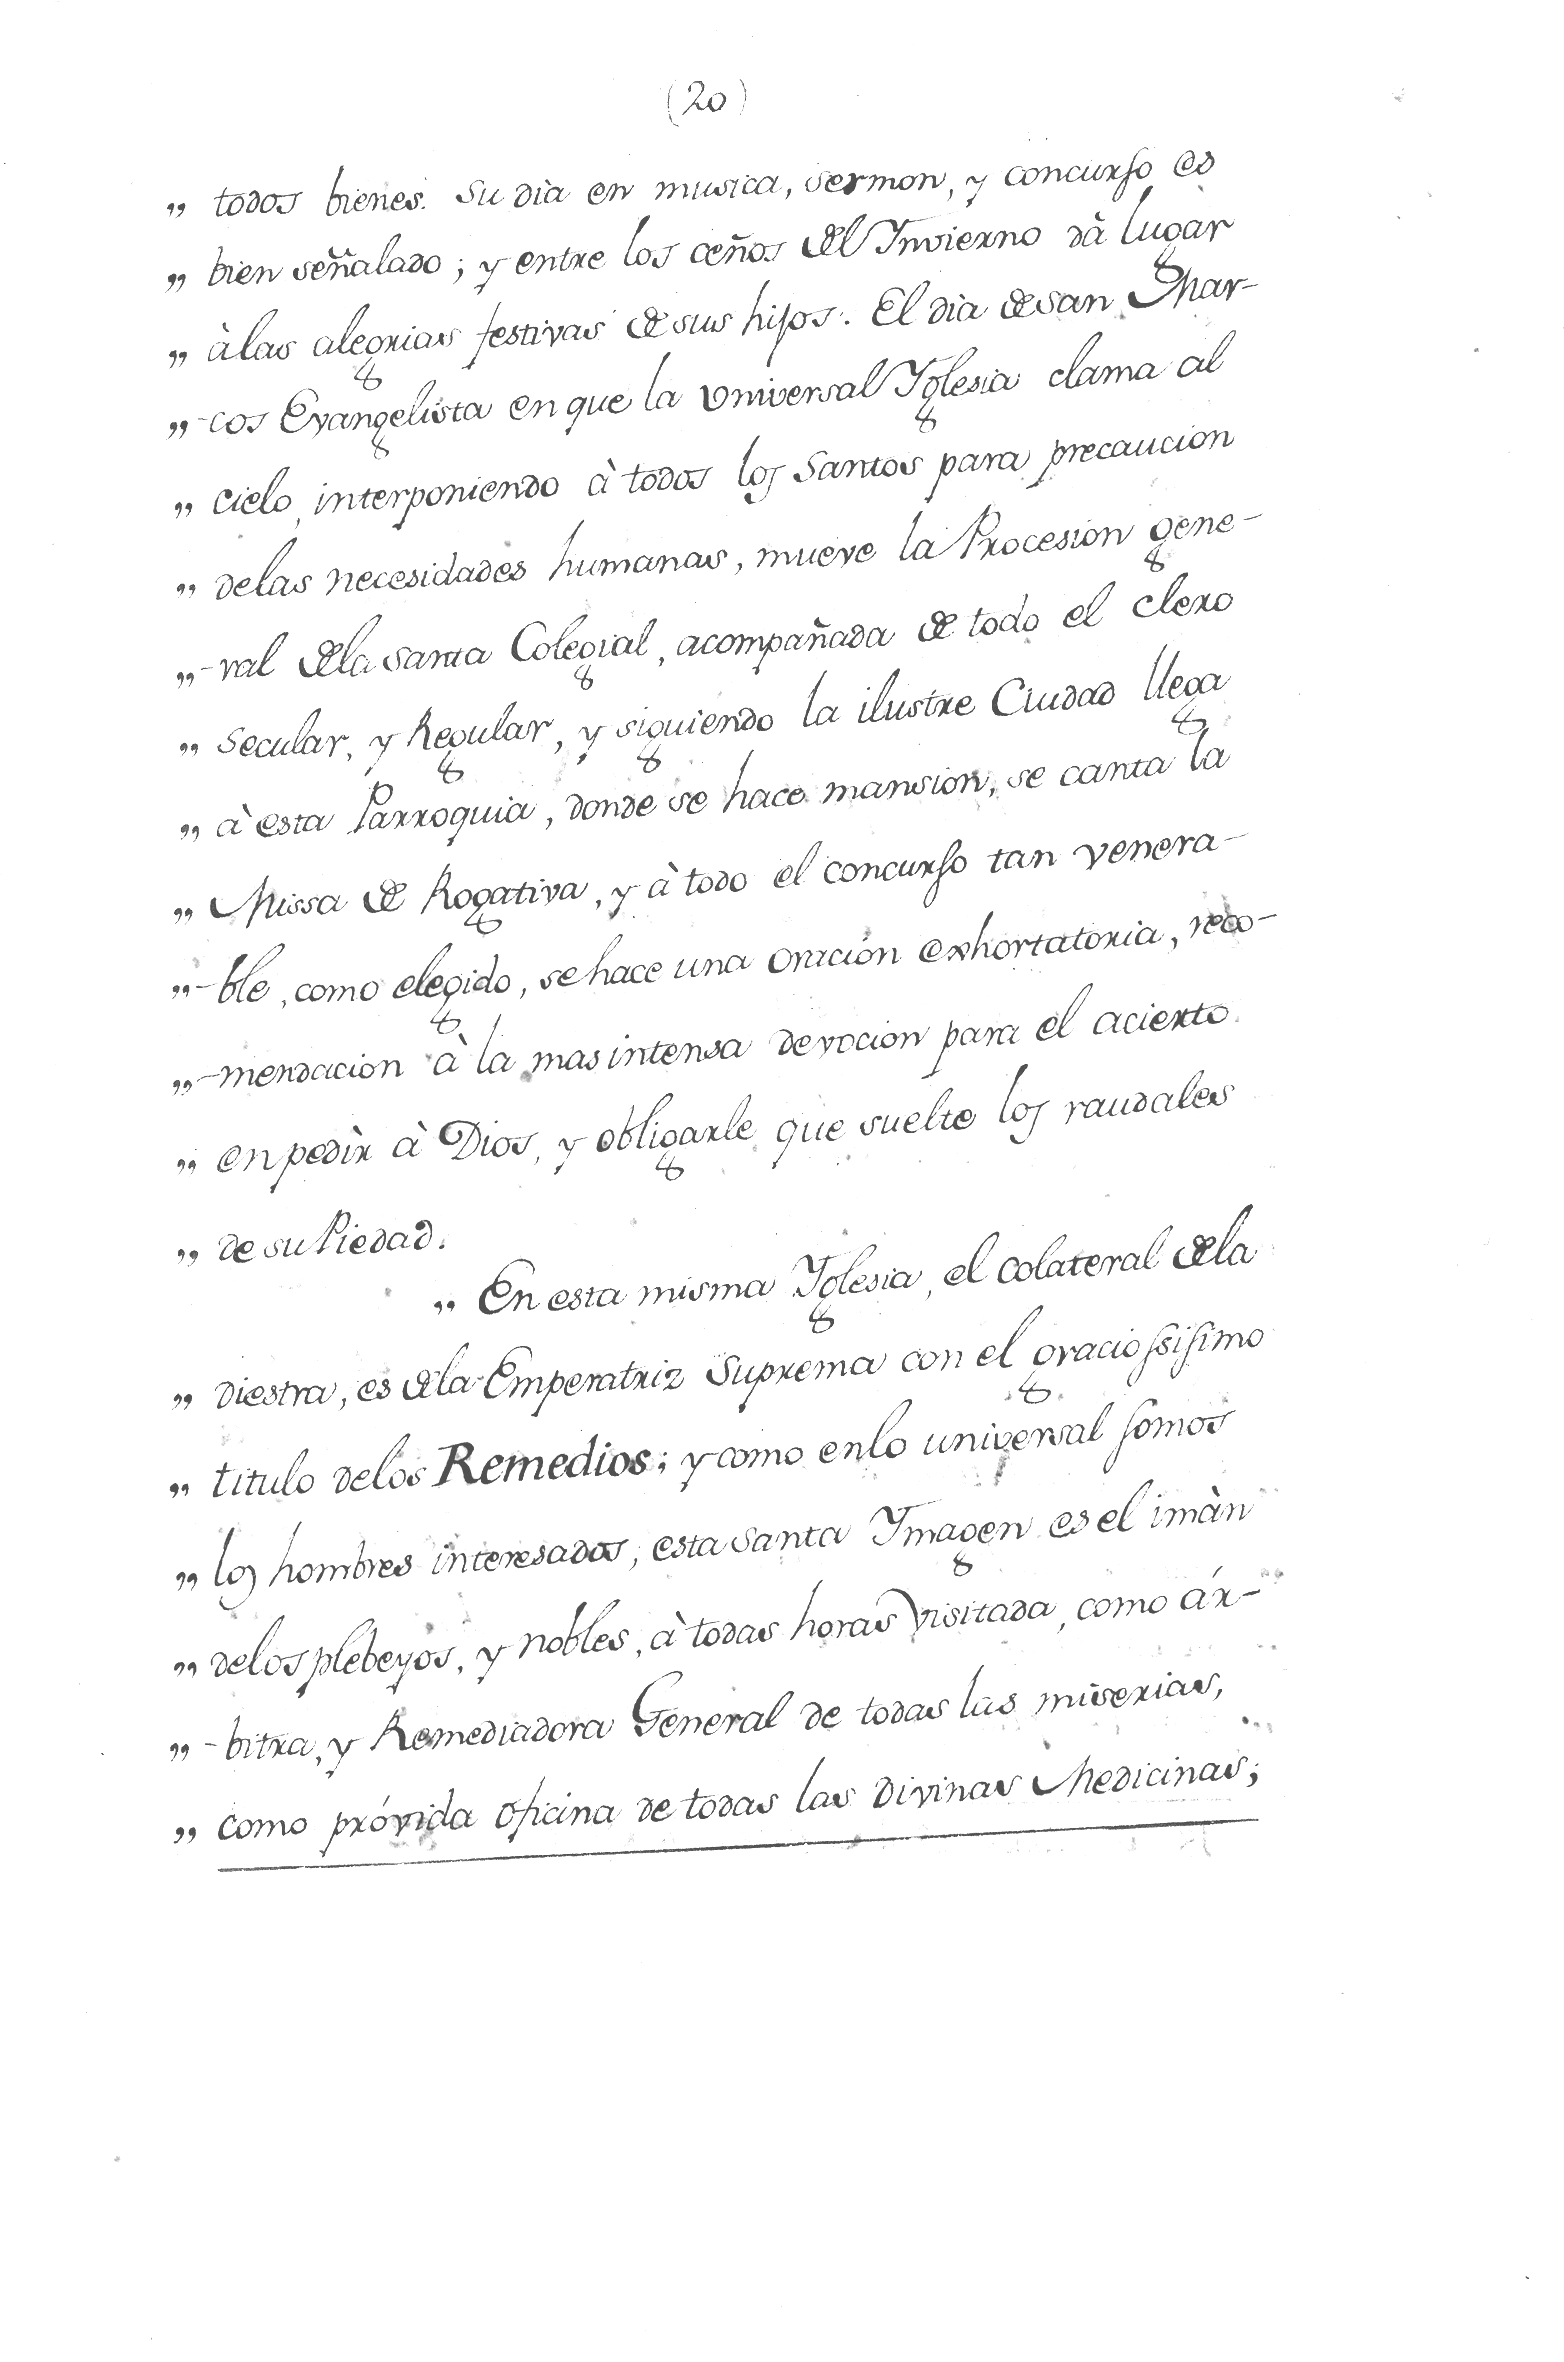 (20)
„ todos bienes. Su dia en musica, sermon, y concurso es
„ bien señalado; y entre los ceños del Invierno dà lugar
„ à las alegrias festivas de sus hijos. El dia de san Mar-
„ -cos Evangelista en que la Universal Yglesia clama al
„ cielo, interponiendo à todos los Santos para precaucion
„ delas necesidades humanas, mueve la Procesion gene-
„ -ral dela santa Colegial, acompañada de todo el clero
„ Secular, y Regular, y siguiendo la ilustre Ciudad llega
„ à esta Parroquia, donde se hace mansion, se canta la
„ Missa de Rogativa, y à todo el concurso tan venera-
„ -ble, como elegido, se hace una oracion exhortatoria, reco-
„ -mendacion à la mas intensa devocion para el acierto
„ en pedir à Dios, y obligarle que suelte los raudales
„ de su Piedad.
„ En esta misma Yglesia, el colateral dela
„ diestra, es dela Emperatriz Suprema con el graciossisimo
„ titulo delos Remedios; y como enlo universal somos
„ los hombres interesados, esta santa Ymagen es el imàn
„ delos plebeyos, y nobles, à todas horas visitada, como ár-
„ -bitra, y Remediadora General de todas las miserias,
„ como próvida oficina de todas las divinas Medicinas;